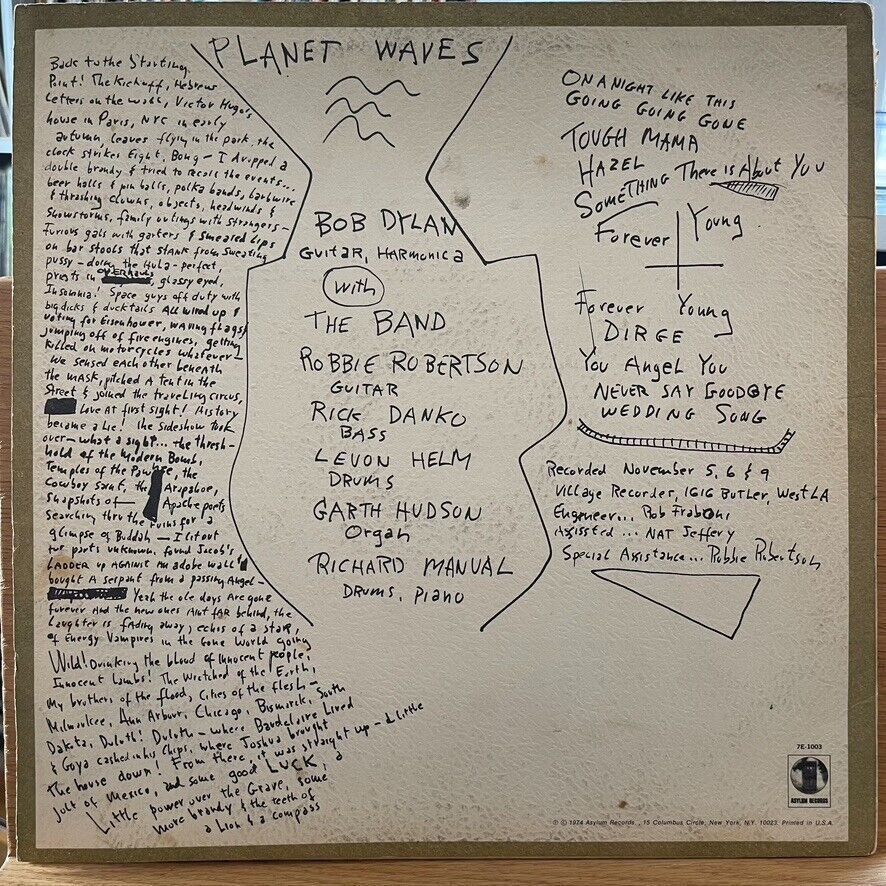 PLANET WAVES
Back to the Starting
Point! The Kickoff, Hebrew
letters on the wall, Victor Hugo's
house in Paris, NYC in early
autumn, leaves flying in the park, the
clock strikes Eight, Bong - I dropped a
double brandy & tried to recall the events...
beer halls & pin balls, polka bands, barbwire
& thrashing clowns, objects, headwinds &
snowstorms, family outings with strangers -
Furious gals with garters & smeared lips
on bar stools that stank from sweating
pussy - doing the Hula - perfect,
priests in overhauls, glassy eyed,
Insomnia! Space guys off duty with
big dicks & ducktails All wired up &
voting for Eisenhower, waving flags &
jumping off of fire engines, getting
killed on motorcycles whatever -
We sensed each other beneath
the mask, pitched a tent in the
Street & joined the traveling circus,
love at first sight! History
became a lie! the sideshow took
over - what a sight... the thresh-
hold of the Modern Bomb,
Temples of the Pawnee, the
Cowboy saint, the Arapahoe,
snapshots of Apache poets
searching thru the ruins for a
glimpse of Buddah - I lit out
for parts unknown, found Jacob's
LADDER up AGAINST an adobe wall &
bought A serpant from a passing Angel -
Yeah the ole days Are gone
forever And the new ones Aint fAR behind, the
Laughter is fAding away, echos of a staR,
of Energy Vampires in the Gone World going
Wild! Drinking the blood of Innocent people,
Innocent lambs! The Wretched of the Earth,
My brothers of the flood, Cities of the flesh -
Milwaukee, Ann Arbour, Chicago, Bismarck, South
Dakota, Duluth! Duluth - where Baudelaire Lived
& Goya cashed in his Chips, where Joshua brought
the house down! From there, it was straight up - a little
jolt of Mexico, and some good LUCK, a
Little power over the Grave, some
more brandy & the teeth of
a lion & a compass
BOB DYLAN
GUITAR, HARMONICA
with
THE BAND
ROBBIE ROBERTSON
GUITAR
RICK DANKO
BASS
LEVON HELM
DRUMS
GARTH HUDSON
Organ
RICHARD MANUAL
DRUMS, PIANO
ON A NIGHT LIKE THIS
GOING GOING GONE
TOUGH MAMA
HAZEL
SOMETHING There is About You
Forever Young
Forever Young
DIRGE
You Angel You
NEVER SAY GOODBYE
WEDDING SONG
Recorded November 5, 6 & 9
Village Recorder, 1616 BUTLER, West LA
Engineer... Rob Fraboni
Assissted... NAT Jeffery
Special Assistance... Robbie Robertson
7E-1003
ASYLUM RECORDS
Ⓟ © 1974 Asylum Records., 15 Columbus Circle, New York, N.Y. 10023. Printed in U.S.A.